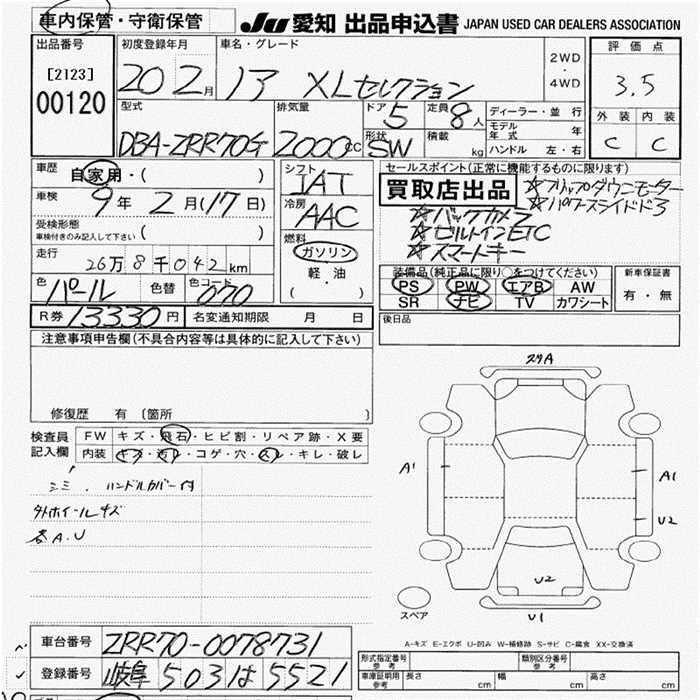 車内保管・守衛保管 JU 愛知 出品申込書 JAPAN USED CAR DEALERS ASSOCIATION
出品番号 初度登録年月 車名・グレード 2WD・4WD 評価点
[2123] 00120 20 2月 13 XLセレクション 3.5
型式 排気量 ドア 5 定員 8人 ディーラー・並行 外装 内装
DBA-ZRR70G 2000cc 形状 SW 積載 kg モデル年式 年 C C
ハンドル 左・右
車歴 自家用・( ) シフト IAT セールスポイント(正常に機能するものに限ります)
車検 9年 2月(17日) 冷房 AAC 買取店出品 ☆フリップダウンモーター
☆パワースライドド3
受検形態 ☆バックカメラ
車検付きのみ記入して下さい ( ) 燃料 ☆ビルトインETC
走行 26万8千042km ガソリン ☆スマートキー
軽・油
( )
色 パール 色替 色コード 070
装備品(純正品に限り○をつけてください) 新車保証書
PS PW エアB AW 有・無
SR ナビ TV カワシート
R券 13330円 名変通知期限 月 日 後日品
注意事項申告欄(不具合内容等は具体的に記入して下さい)
修復歴 有 〔箇所 〕
検査員記入欄 FW キズ・飛石・ヒビ割・リペア跡・X要
内装 キズ・汚レ・コゲ・穴・スレ・キレ・破レ
シミ、ハンドルカバー付
外ホイールキズ
各A.U
A1
A1
U2
U2
U1
スペア
A-キズ E-エクボ U-凹み W-補修跡 S-サビ C-腐食 XX-交換済
車台番号 ZRR70-0078731
登録番号 岐阜 503 は 5521
形式指定番号 参考 類別区分番号 参考
車庫証明用 参考 長さ cm 幅 cm 高さ cm